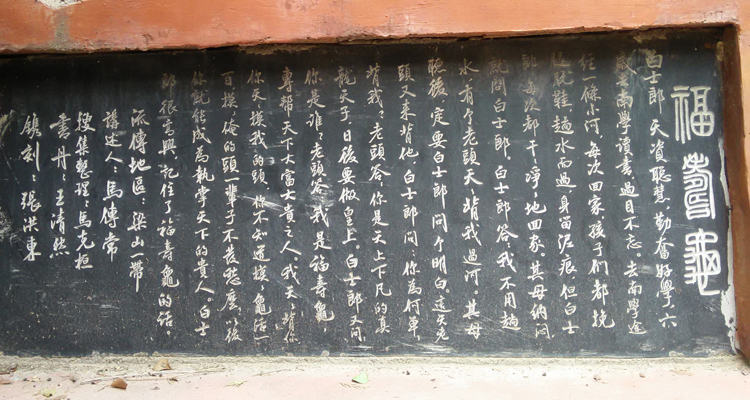 福壽龜
白士郎天資聰慧，勤奮好學，六
歲去南學讀書，過目不忘。去南學途
經一條小河，每次回家，孩子們都挽
腿脫鞋，趟水而過，身留泥痕，但白士
郎每次都干干淨淨地回家。其母納悶，
就問白士郎。白士郎答，我不用趟
水，有個老頭天天背我過河。其母
聽後一定要白士郎問個明白。這天老
頭又來背他，白士郎問：你為何單
背我？老頭答，你是天上下凡的真
龍天子，日後要做皇上。白士郎又問，
你是誰？老頭答，我是福壽龜，
專幫天下大富士貴之人。我天天背你，
你天天摸我的頭，你不知道摸摸龜活一
百摸摸俺的頭一輩子不長愁麼，以後
你就能成為執掌天下的貴人。白士
郎很高興，記住了福壽龜的話。
流傳地區：梁山一帶
講述人：馬傳常
搜集整理：馬克恒
書丹：王清然
鐫刻：張洪東